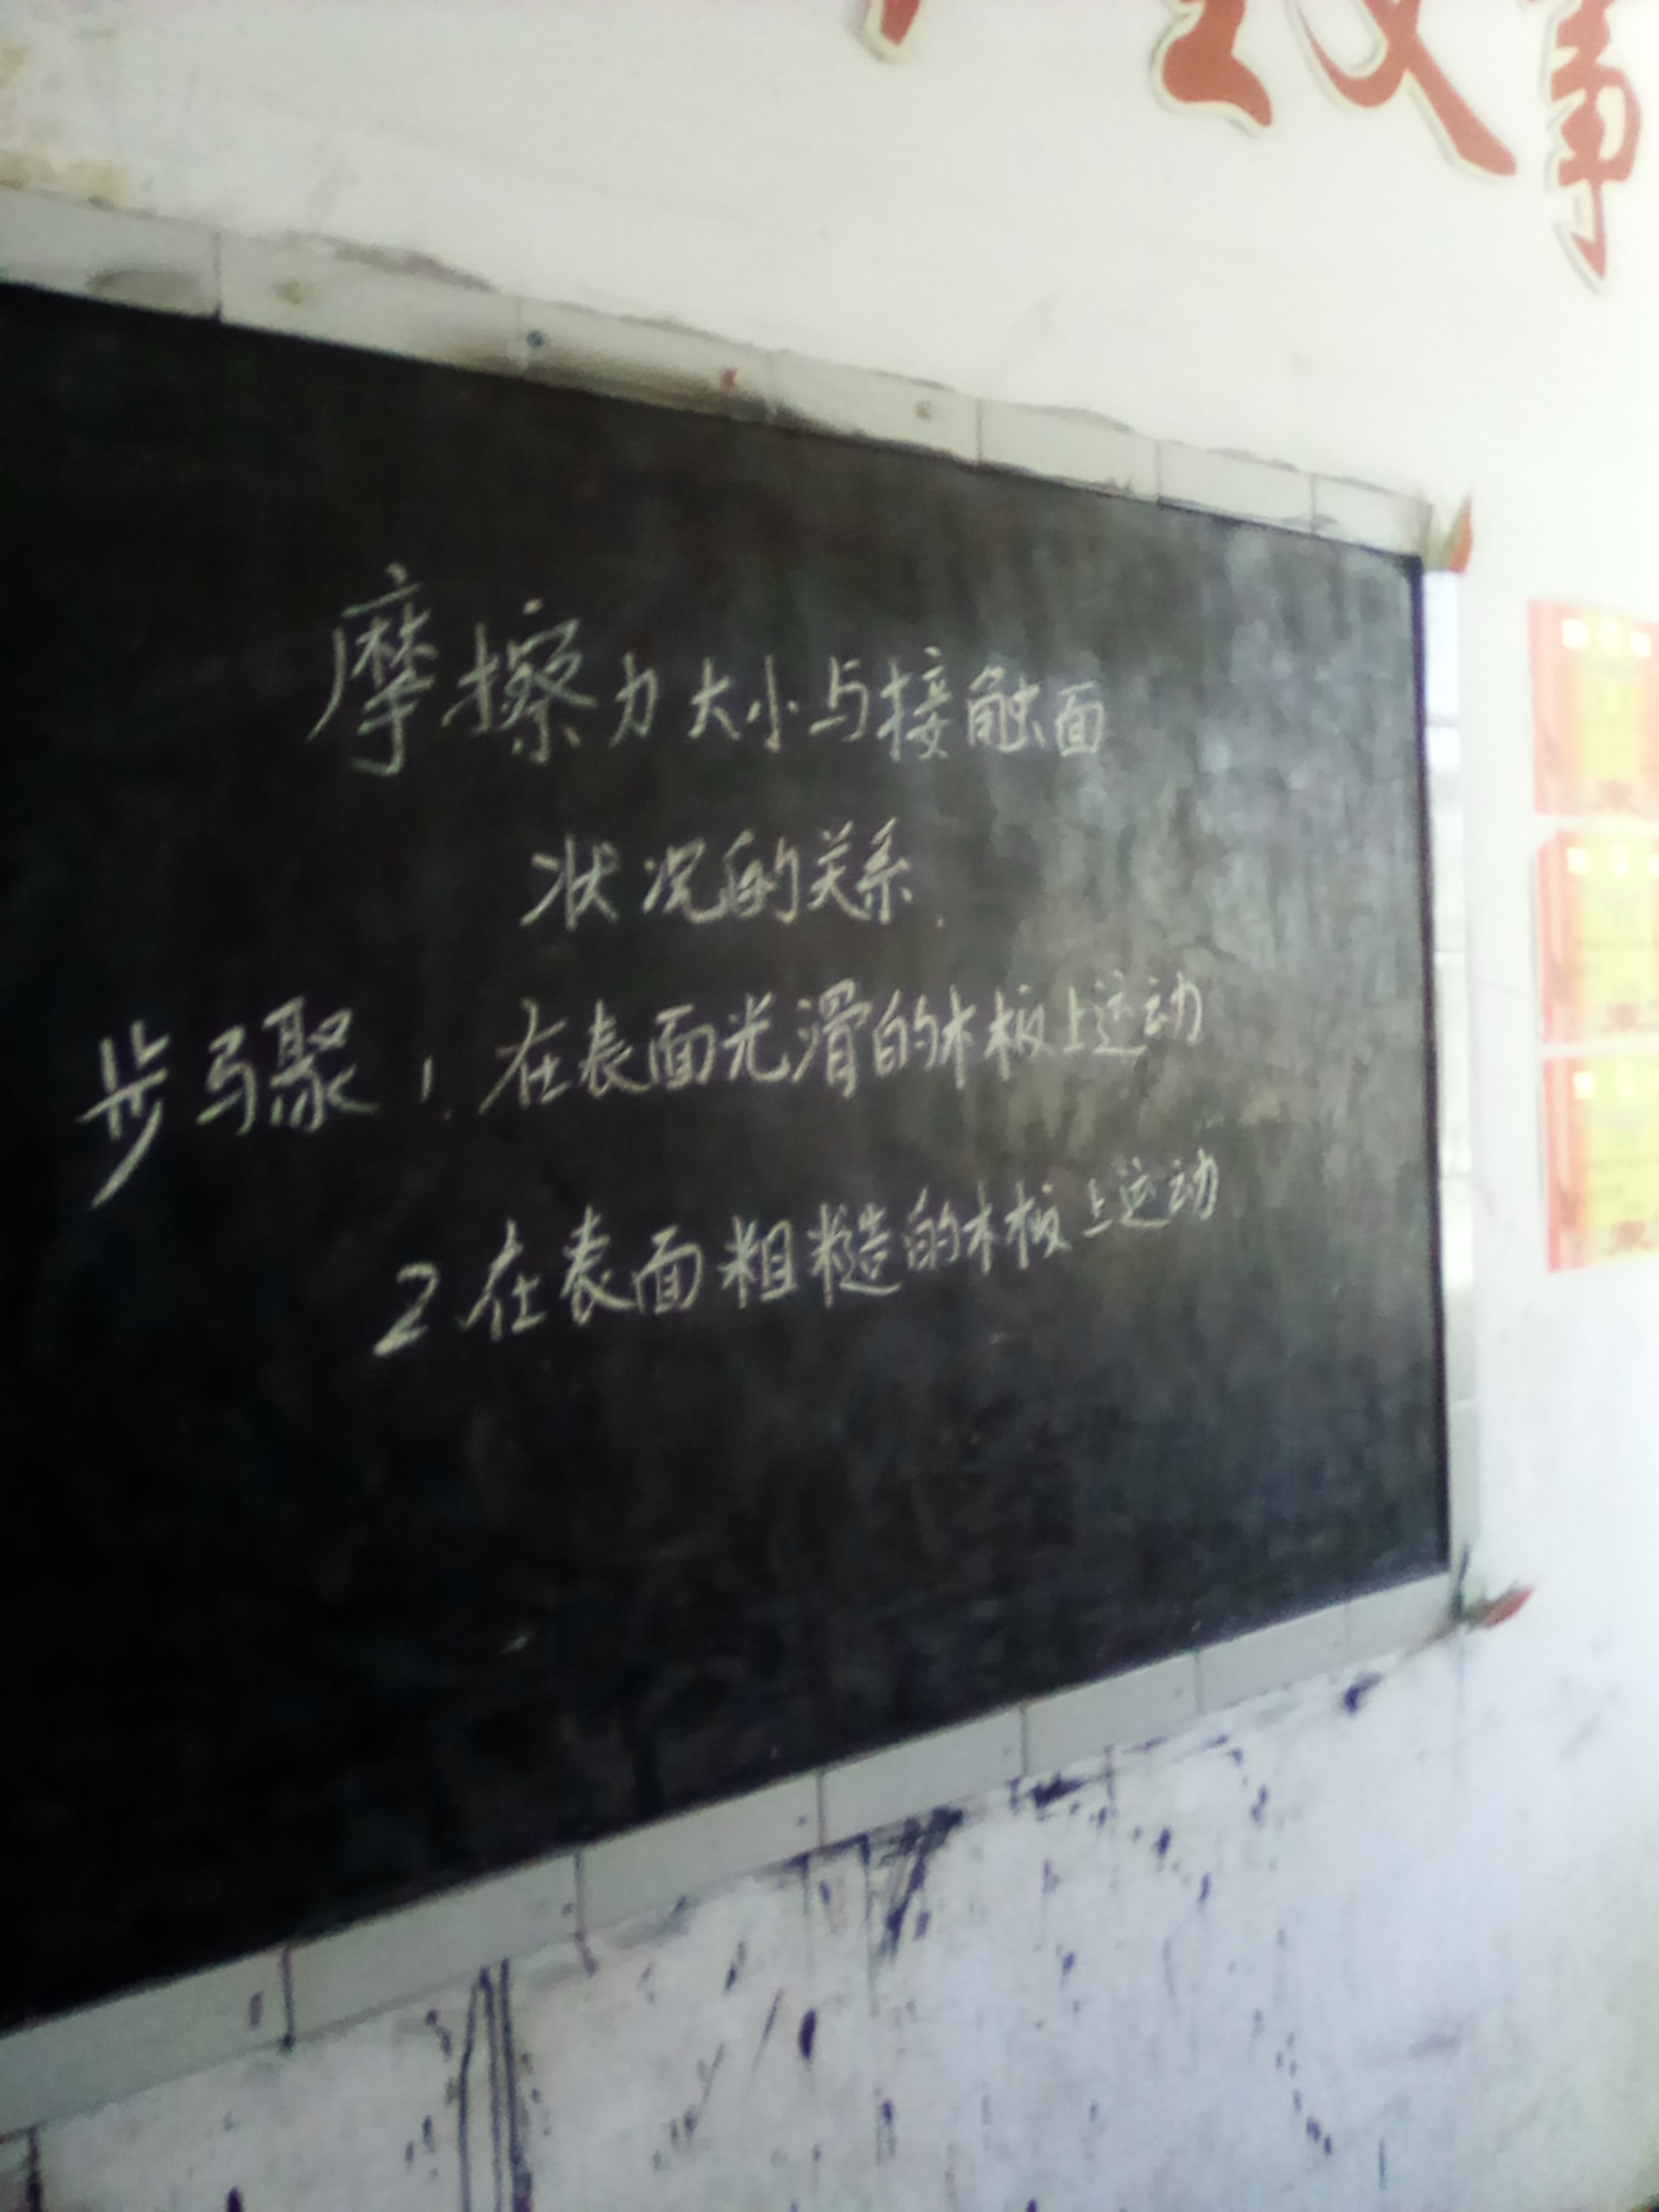 摩擦力大小与接触面
状况的关系.
步骤1.在表面光滑的木板上运动
2在表面粗糙的木板上运动